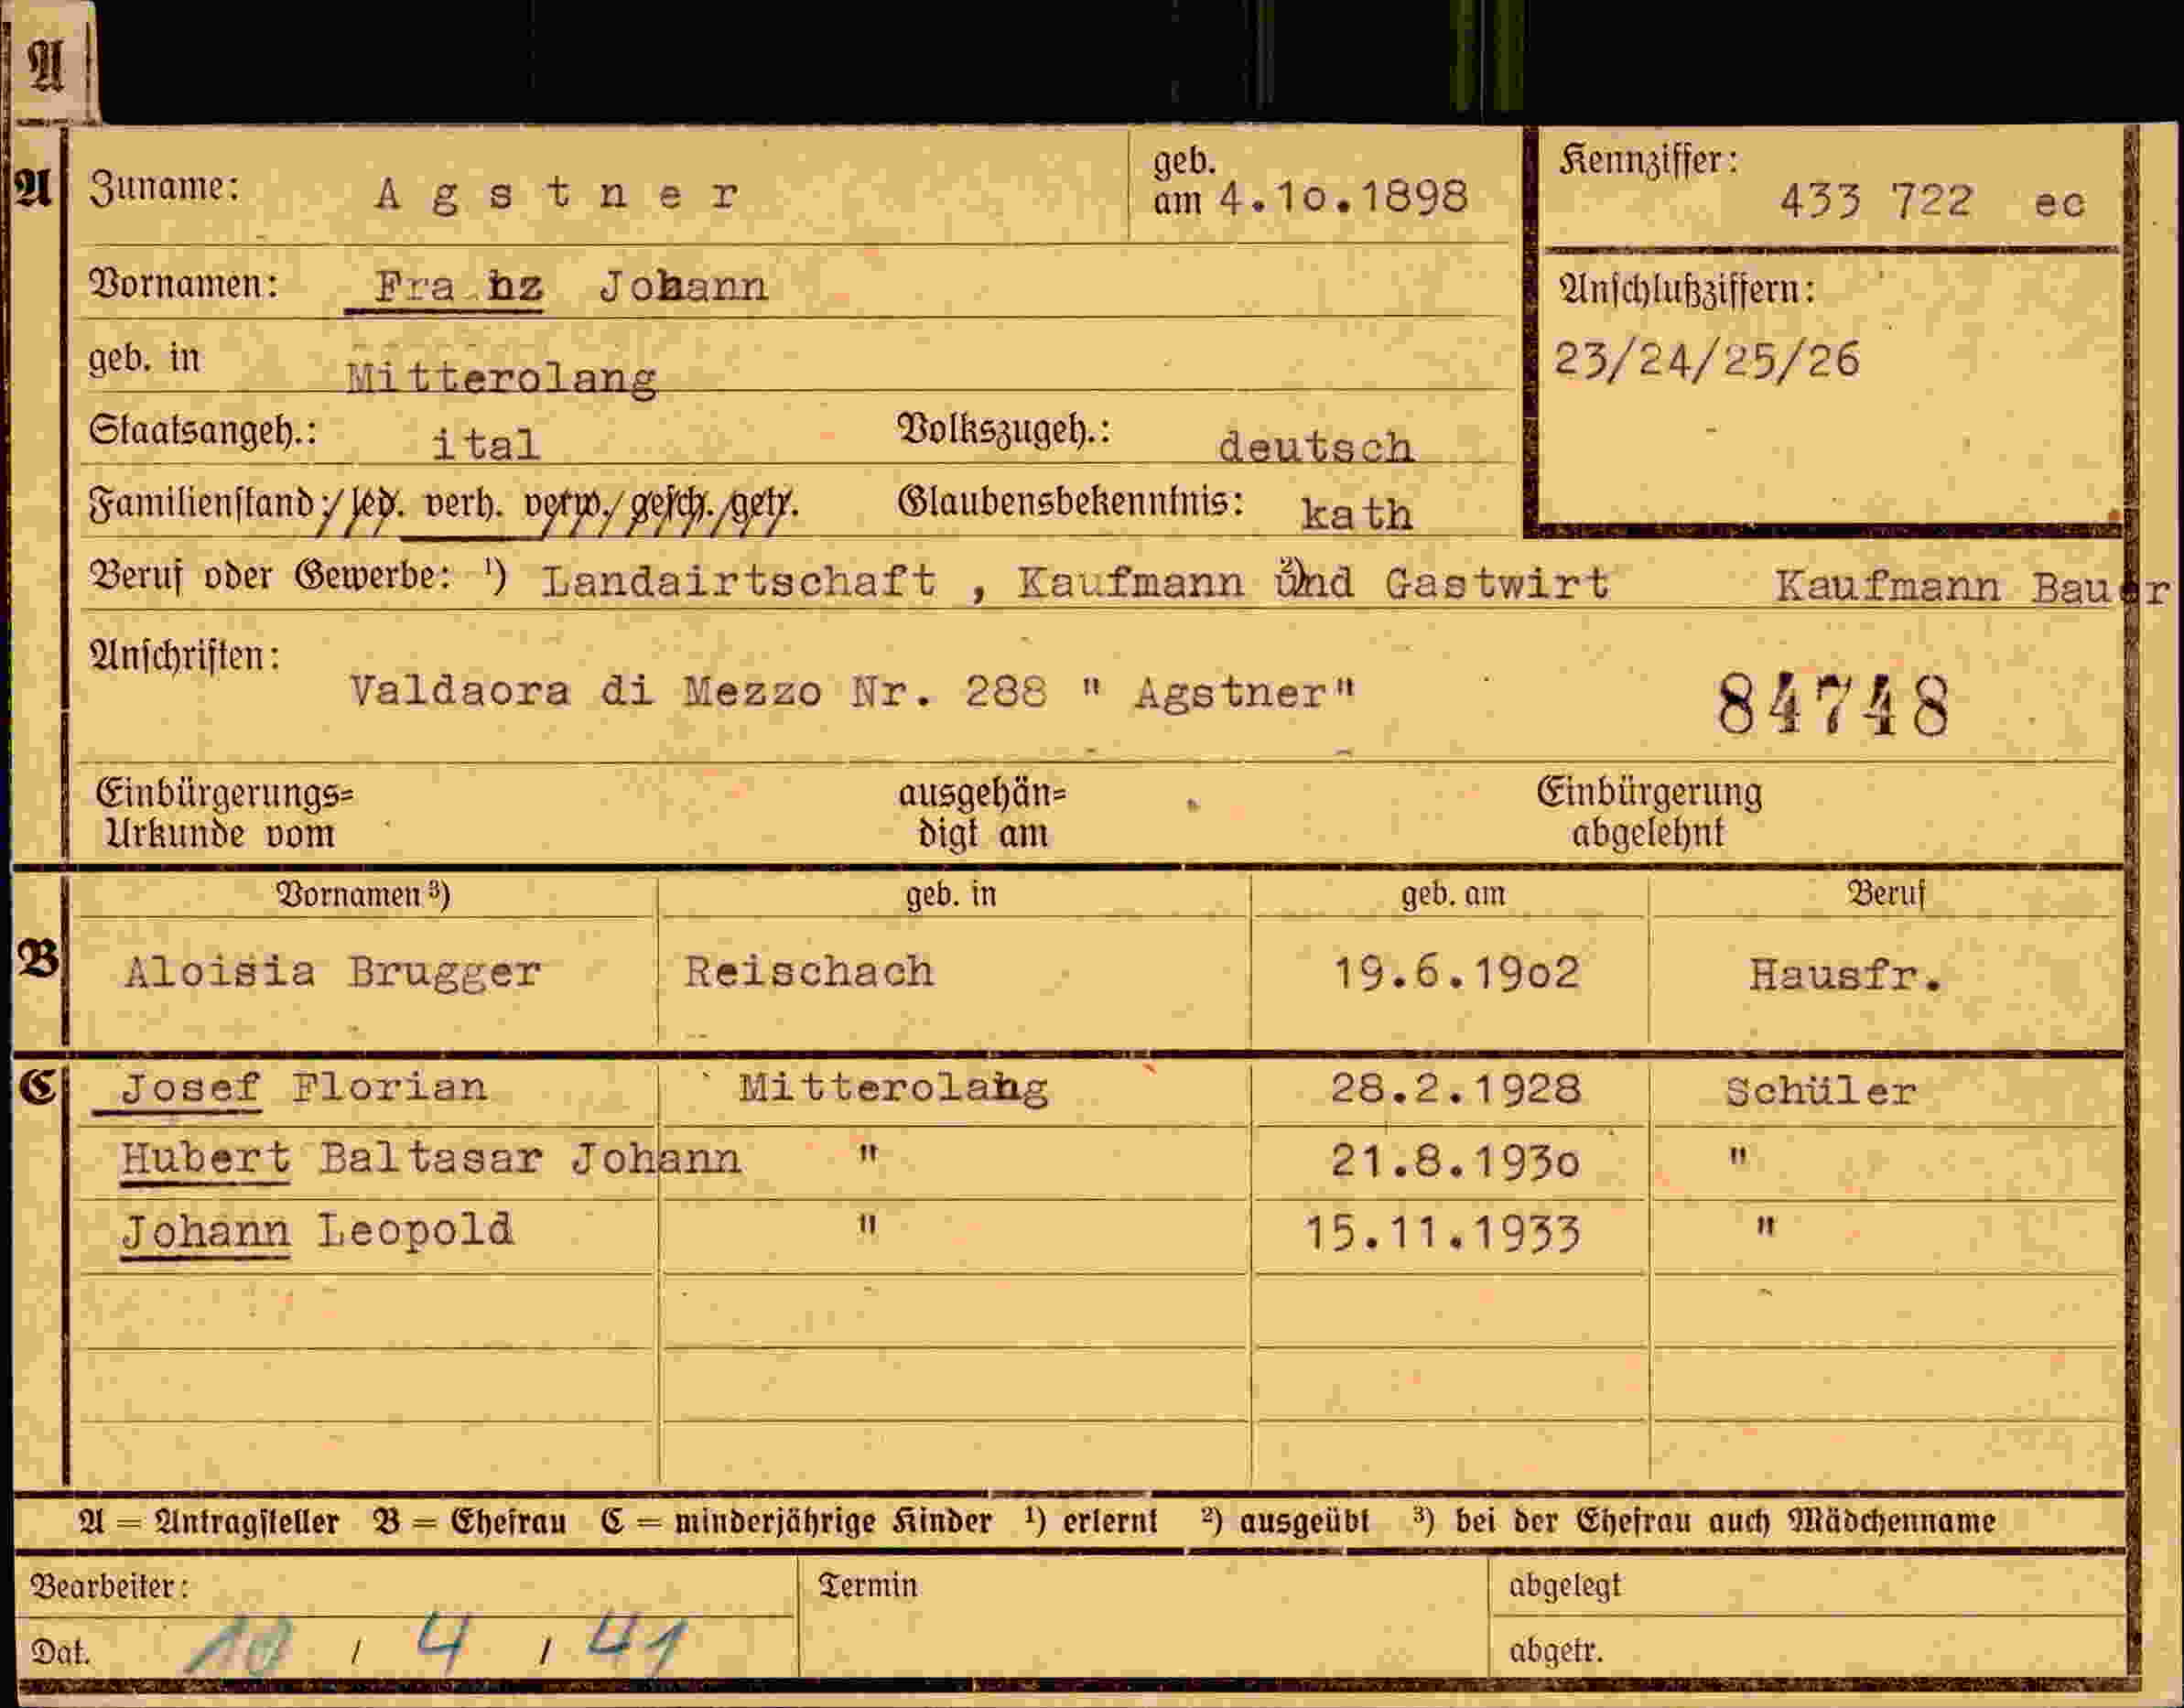 A
A Zuname: Agstner geb. am 4.10.1898 Kennziffer: 433 722 ec
Vornamen: Franz Johann Anschlußziffern:
23/24/25/26
geb. in Mitterolang
Staatsangeh.: ital Volkszugeh.: deutsch
Familienstand: led. verh. verw. gesch. getr. Glaubensbekenntnis: kath
Beruf oder Gewerbe: ¹) Landairtschaft , Kaufmann und ²) Gastwirt Kaufmann Bauer
Anschriften:
Valdaora di Mezzo Nr. 288 " Agstner" 84748
Einbürgerungs= ausgehän= Einbürgerung
Urkunde vom digt am abgelehnt
Vornamen ³) geb. in geb. am Beruf
B Aloisia Brugger Reischach 19.6.1902 Hausfr.
C Josef Florian Mitterolang 28.2.1928 Schüler
Hubert Baltasar Johann " 21.8.1930 "
Johann Leopold " 15.11.1933 "
A = Antragsteller B = Ehefrau C = minderjährige Kinder ¹) erlernt ²) ausgeübt ³) bei der Ehefrau auch Mädchenname
Bearbeiter: Termin abgelegt
Dat. 10 / 4 / 41 abgetr.